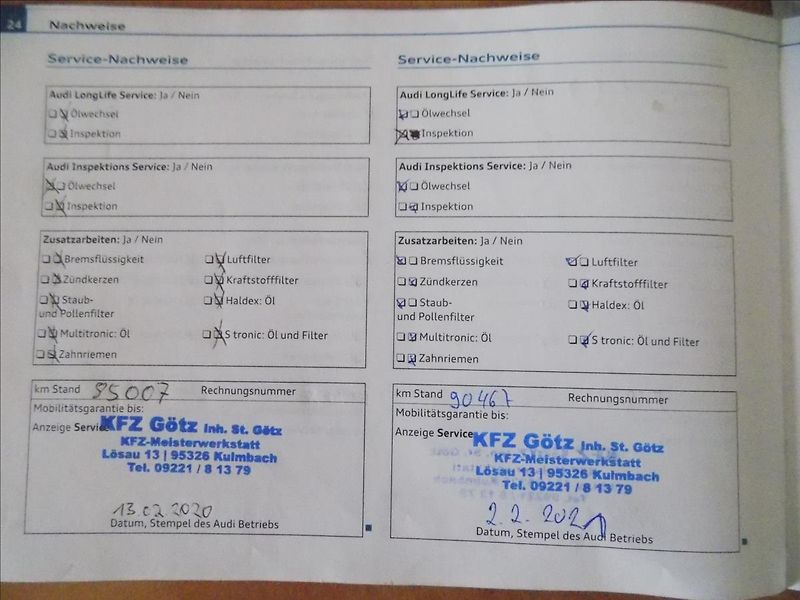 24 Nachweise
Service-Nachweise
Audi LongLife Service: Ja / Nein
Ölwechsel
Inspektion
Audi Inspektions Service: Ja / Nein
Ölwechsel
Inspektion
Zusatzarbeiten: Ja / Nein
Bremsflüssigkeit Luftfilter
Zündkerzen Kraftstofffilter
Staub- Haldex: Öl
und Pollenfilter
Multitronic: Öl S tronic: Öl und Filter
Zahnriemen
km Stand 85007 Rechnungsnummer
Mobilitätsgarantie bis:
Anzeige Service
KFZ Götz Inh. St. Götz
KFZ-Meisterwerkstatt
Lösau 13 | 95326 Kulmbach
Tel. 09221 / 8 13 79
13.02.2020
Datum, Stempel des Audi Betriebs
Service-Nachweise
Audi LongLife Service: Ja / Nein
Ölwechsel
Inspektion
Audi Inspektions Service: Ja / Nein
Ölwechsel
Inspektion
Zusatzarbeiten: Ja / Nein
Bremsflüssigkeit Luftfilter
Zündkerzen Kraftstofffilter
Staub- Haldex: Öl
und Pollenfilter
Multitronic: Öl S tronic: Öl und Filter
Zahnriemen
km Stand 90467 Rechnungsnummer
Mobilitätsgarantie bis:
Anzeige Service
KFZ Götz Inh. St. Götz
KFZ-Meisterwerkstatt
Lösau 13 | 95326 Kulmbach
Tel. 09221 / 8 13 79
2.2.2021
Datum, Stempel des Audi Betriebs